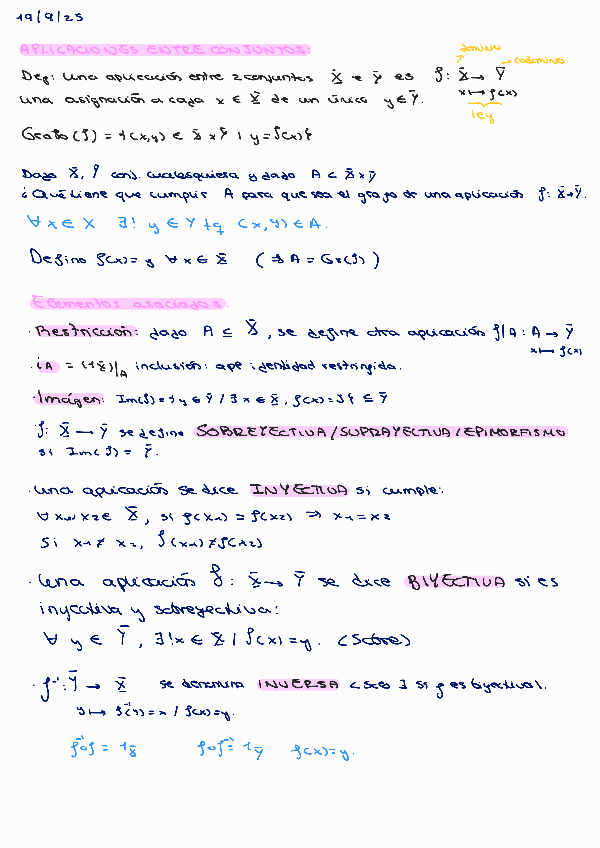 19/9/25
APLICACIONES ENTRE CONJUNTOS:
dominio
Def: Una aplicación entre 2 conjuntos X e Y es f: X → Y → codominio
una asignación a cada x ∈ X de un único y ∈ Y. x ↦ f(x)
ley
Grafo(f) = {(x,y) ∈ X x Y | y = f(x)}
Dado X, Y conj. cualesquiera y dado A ⊂ X x Y
¿Qué tiene que cumplir A para que sea el grafo de una aplicación f: X → Y.
∀ x ∈ X ∃! y ∈ Y tq (x,y) ∈ A.
Defino f(x) = y ∀ x ∈ X (⇒ A = Gr(f))
Elementos asociados.
· Restricción: dado A ⊆ X, se define otra aplicación f|A : A → Y
x ↦ f(x)
· iA = (1X)|A inclusión: ape identidad restringida.
· Imágen: Im(f) = {y ∈ Y / ∃ x ∈ X, f(x) = y} ⊆ Y
f: X → Y se define SOBREYECTIVA/SUPRAYECTIVA/EPIMORFISMO
si Im(f) = Y.
· Una aplicación se dice INYECTIVA si cumple:
∀ x1, x2 ∈ X, si f(x1) = f(x2) ⇒ x1 = x2
Si x1 ≠ x2, f(x1) ≠ f(x2)
· Una aplicación f: X → Y se dice BIYECTIVA si es
inyectiva y sobreyectiva:
∀ y ∈ Y, ∃! x ∈ X / f(x) = y. (Sobre)
· f⁻¹: Y → X se denomina INVERSA (solo ∃ si f es biyectiva).
y ↦ f⁻¹(y) = x / f(x) = y.
f⁻¹∘f = 1X f∘f⁻¹ = 1Y f(x) = y.